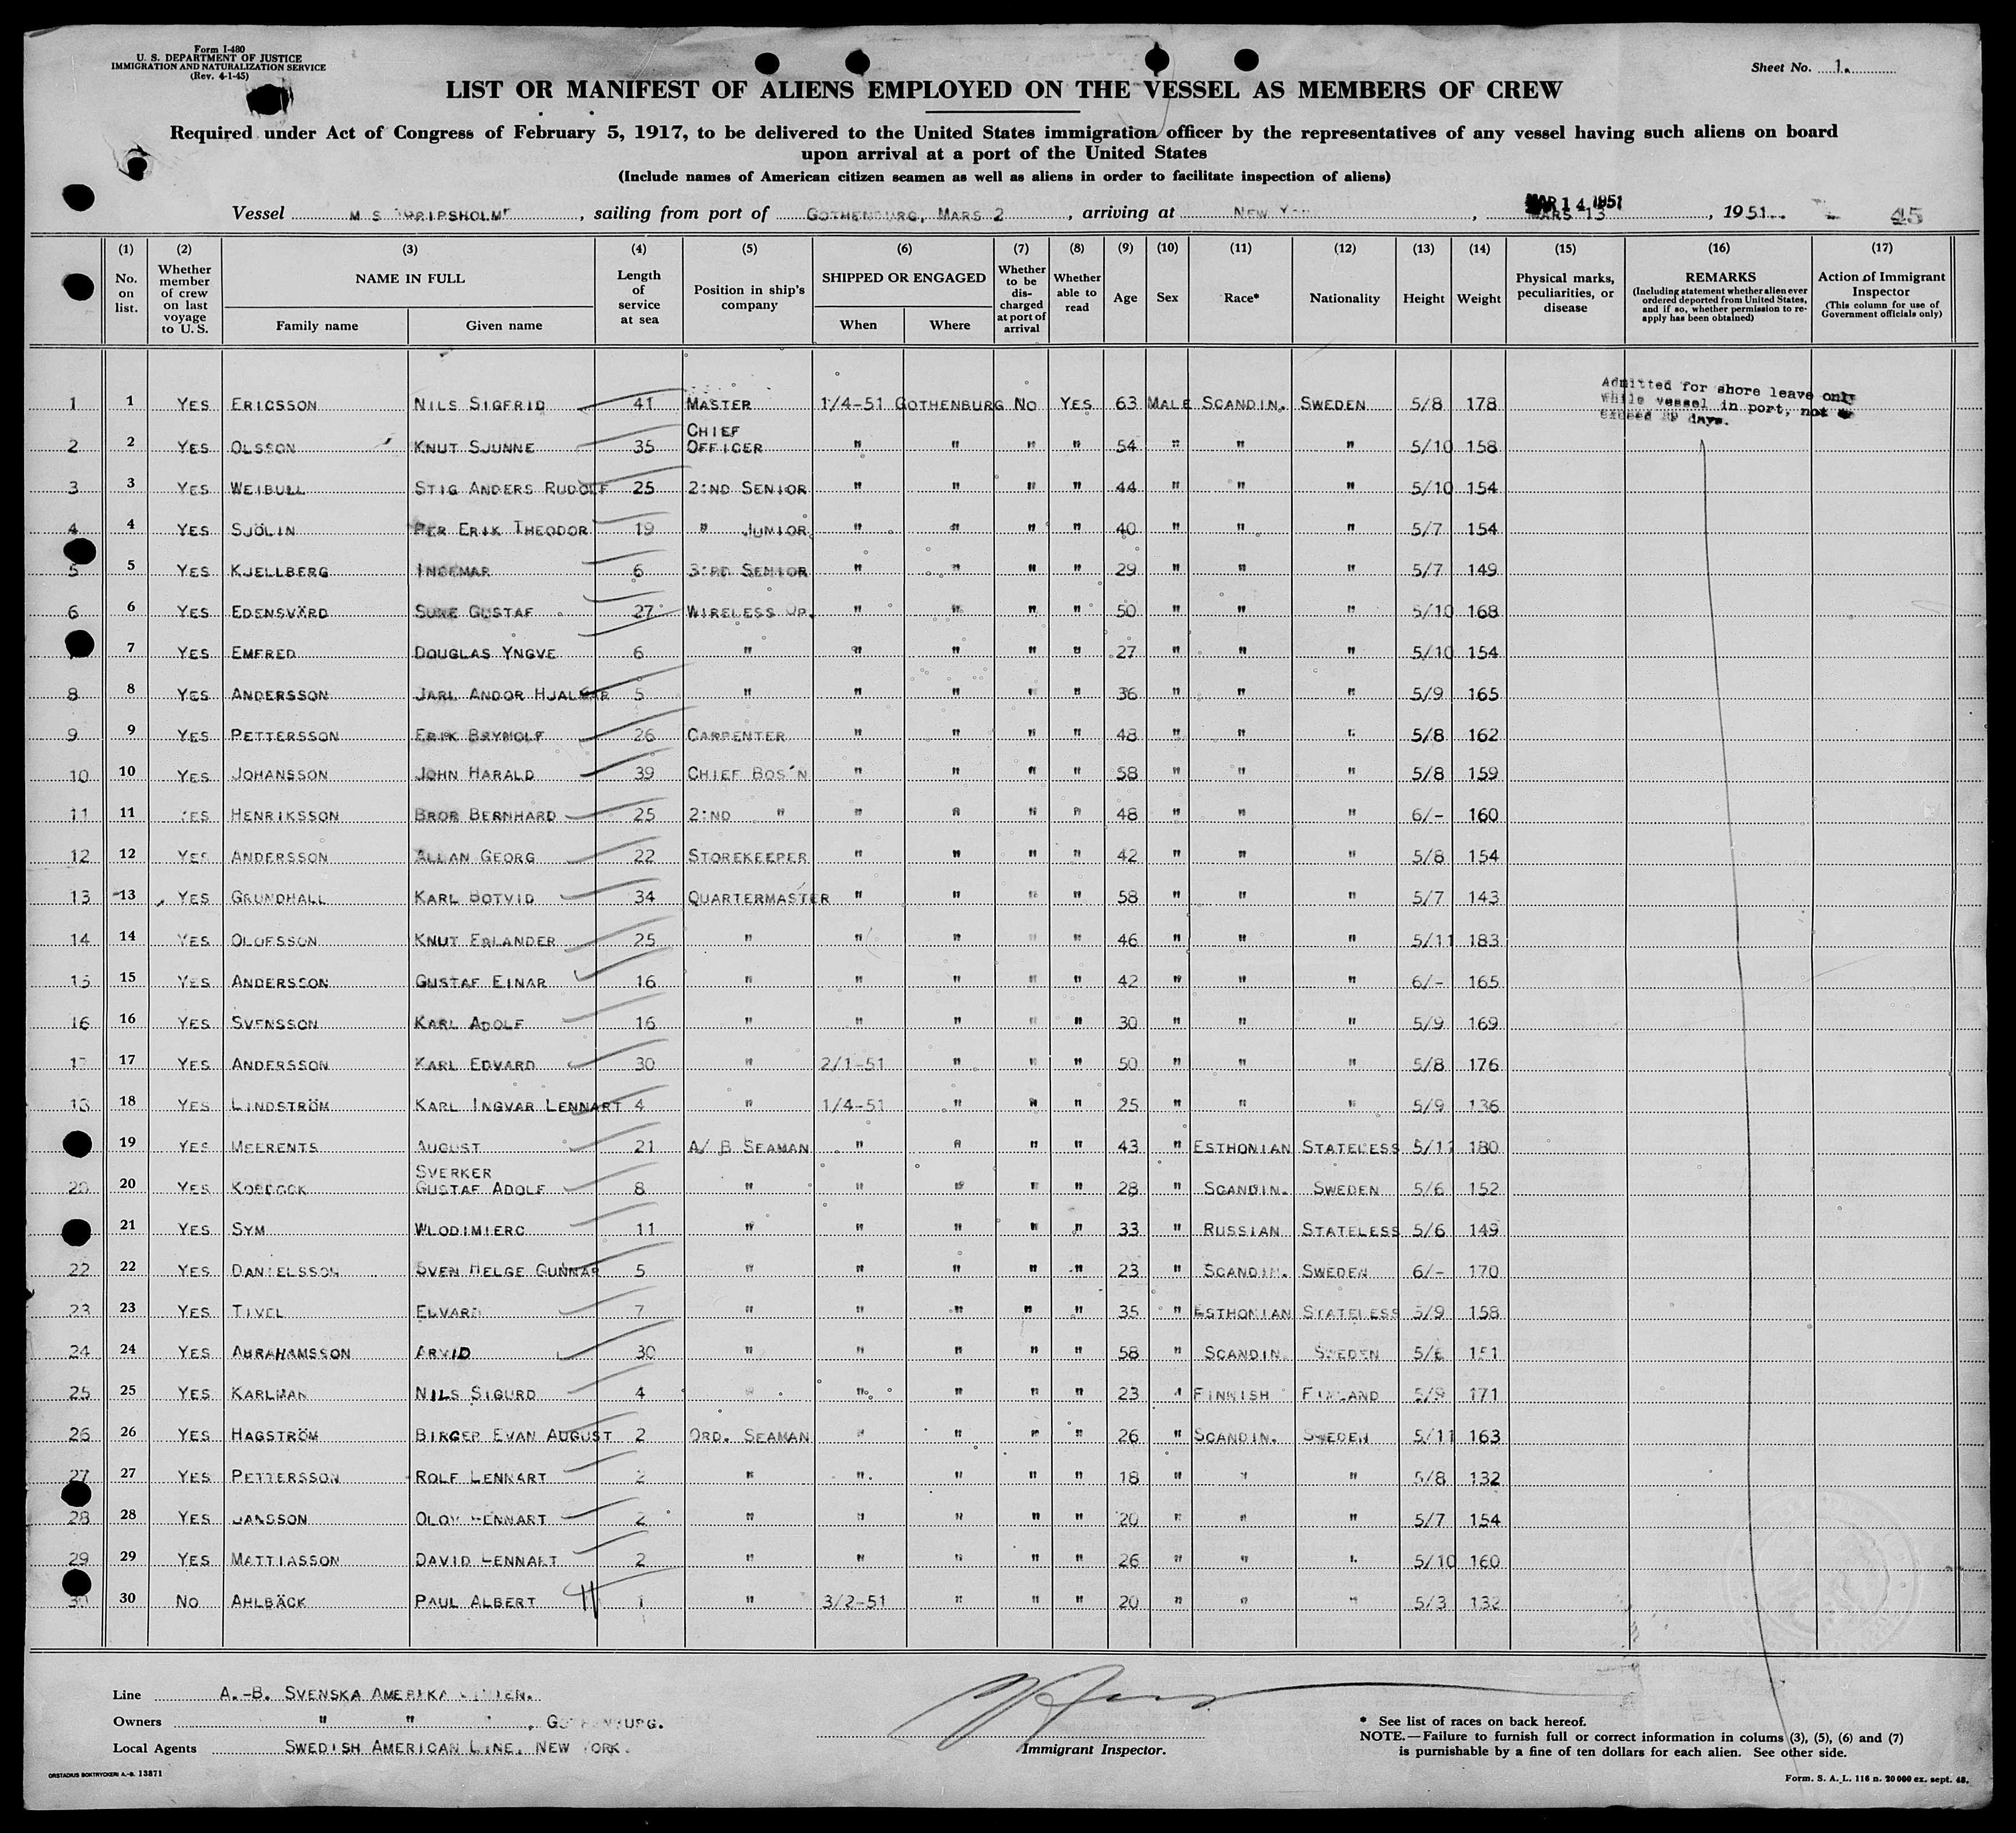 Form I-480
U. S. DEPARTMENT OF JUSTICE
IMMIGRATION AND NATURALIZATION SERVICE
(Rev. 4-1-45)
Sheet No. 1.
LIST OR MANIFEST OF ALIENS EMPLOYED ON THE VESSEL AS MEMBERS OF CREW
Required under Act of Congress of February 5, 1917, to be delivered to the United States immigration officer by the representatives of any vessel having such aliens on board
upon arrival at a port of the United States
(Include names of American citizen seamen as well as aliens in order to facilitate inspection of aliens)
Vessel M S "GRIPSHOLM", sailing from port of GOTHENBURG, MARS 2, arriving at NEW YORK, MARS 13, 1951 45
MAR 14 1951
(1) (2) (3) (4) (5) (6) (7) (8) (9) (10) (11) (12) (13) (14) (15) (16) (17)
No. on list. Whether member of crew on last voyage to U. S. NAME IN FULL Family name Given name Length of service at sea Position in ship's company SHIPPED OR ENGAGED When Where Whether to be discharged at port of arrival Whether able to read Age Sex Race* Nationality Height Weight Physical marks, peculiarities, or disease REMARKS (Including statement whether alien ever ordered deported from United States, and if so, whether permission to re-apply has been obtained) Action of Immigrant Inspector (This column for use of Government officials only)
Admitted for shore leave only
while vessel in port, not to
exceed 29 days.
1 1 YES ERICSSON NILS SIGFRID 41 MASTER 1/4-51 GOTHENBURG NO YES 63 MALE SCANDIN. SWEDEN 5/8 178
2 2 YES OLSSON KNUT SJUNNE 35 CHIEF OFFICER " " " " 54 " " " 5/10 158
3 3 YES WEIBULL STIG ANDERS RUDOLF 25 2:ND SENIOR " " " " 44 " " " 5/10 154
4 4 YES SJÖLIN PER ERIK THEODOR 19 " JUNIOR " " " " 40 " " " 5/7 154
5 5 YES KJELLBERG INGEMAR 6 3:RD SENIOR " " " " 29 " " " 5/7 149
6 6 YES EDENSVÄRD SUNE GUSTAF 27 WIRELESS OP. " " " " 50 " " " 5/10 168
7 YES EMFRED DOUGLAS YNGVE 6 " " " " " 27 " " " 5/10 154
8 8 YES ANDERSSON JARL ANDOR HJALMAR 5 " " " " " 36 " " " 5/9 165
9 9 YES PETTERSSON ERIK BRYNOLF 26 CARPENTER " " " " 48 " " " 5/8 162
10 10 YES JOHANSSON JOHN HARALD 39 CHIEF BOS'N " " " " 58 " " " 5/8 159
11 11 YES HENRIKSSON BROR BERNHARD 25 2:ND " " " " " 48 " " " 6/- 160
12 12 YES ANDERSSON ALLAN GEORG 22 STOREKEEPER " " " " 42 " " " 5/8 154
13 13 YES GRUNDHALL KARL BOTVID 34 QUARTERMASTER " " " " 58 " " " 5/7 143
14 14 YES OLOFSSON KNUT ERLANDER 25 " " " " " 46 " " " 5/11 183
15 15 YES ANDERSSON GUSTAF EINAR 16 " " " " " 42 " " " 6/- 165
16 16 YES SVENSSON KARL ADOLF 16 " " " " " 30 " " " 5/9 169
17 17 YES ANDERSSON KARL EDVARD 30 " 2/1-51 " " " 50 " " " 5/8 176
18 18 YES LINDSTRÖM KARL INGVAR LENNART 4 " 1/4-51 " " " 25 " " " 5/9 136
19 YES MEERENTS AUGUST 21 A/ B SEAMAN " " " " 43 " ESTHONIAN STATELESS 5/11 180
20 20 YES SVERKER GUSTAF ADOLF 8 " " " " " 28 " SCANDIN. SWEDEN 5/6 152
21 YES SYM WLODIMIERC 11 " " " " " 33 " RUSSIAN STATELESS 5/6 149
22 22 YES DANIELSSON SVEN HELGE GUNNAR 5 " " " " " 23 " SCANDIN. SWEDEN 6/- 170
23 23 YES TIVEL EDVARD 7 " " " " " 35 " ESTHONIAN STATELESS 5/9 158
24 24 YES ABRAHAMSSON ARVID 30 " " " " " 58 " SCANDIN. SWEDEN 5/6 151
25 25 YES KARLMAN NILS SIGURD 4 " " " " " 23 " FINNISH FINLAND 5/9 171
26 26 YES HAGSTRÖM BIRGER EVAN AUGUST 2 ORD. SEAMAN " " " " 26 " SCANDIN. SWEDEN 5/11 163
27 27 YES PETTERSSON ROLF LENNART 2 " " " " " 18 " " " 5/8 132
28 28 YES JANSSON OLOV LENNART 2 " " " " " 20 " " " 5/7 154
29 29 YES MATTIASSON DAVID LENNART 2 " " " " " 26 " " " 5/10 160
30 30 NO AHLBÄCK PAUL ALBERT 1 " 3/2-51 " " " 20 " " " 5/3 132
Line A.-B. SVENSKA AMERIKA LINIEN.
Owners " " " , GOTHENBURG.
Local Agents SWEDISH AMERICAN LINE, NEW YORK.
Immigrant Inspector.
* See list of races on back hereof.
NOTE.—Failure to furnish full or correct information in colums (3), (5), (6) and (7)
is purnishable by a fine of ten dollars for each alien. See other side.
ORSTADIUS BOKTRYCKERI A.-B. 13871
Form. S. A. L. 116 n. 20 000 ex. sept. 48.